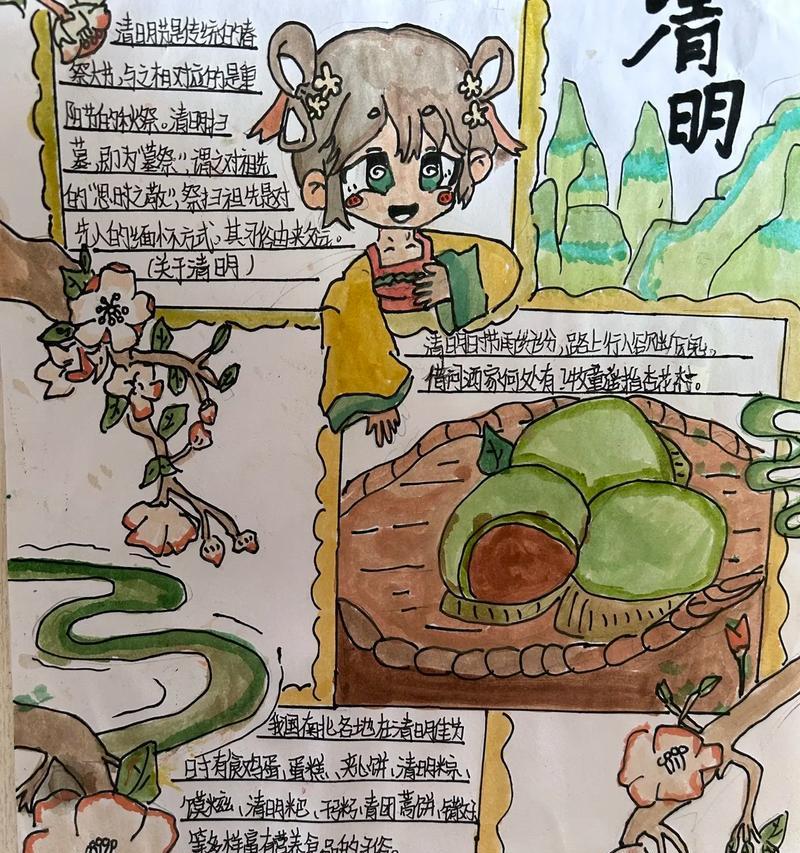 清明
清明节是传统的春
祭大节,与之相对应的是重
阳节的秋祭。清明扫
墓,即为"墓祭",谓之对祖先
的"思时之敬",祭扫祖先是对
先人的缅怀方式,其习俗由来久远。
(关于清明)
清明时节雨纷纷,路上行人欲断魂。
借问酒家何处有?牧童遥指杏花村。
我国南北各地在清明佳节
时有食鸡蛋、蛋糕、夹心饼、清明粽、
馍糍、清明粑、干粥、青团
等多样富有营养食品的习俗。